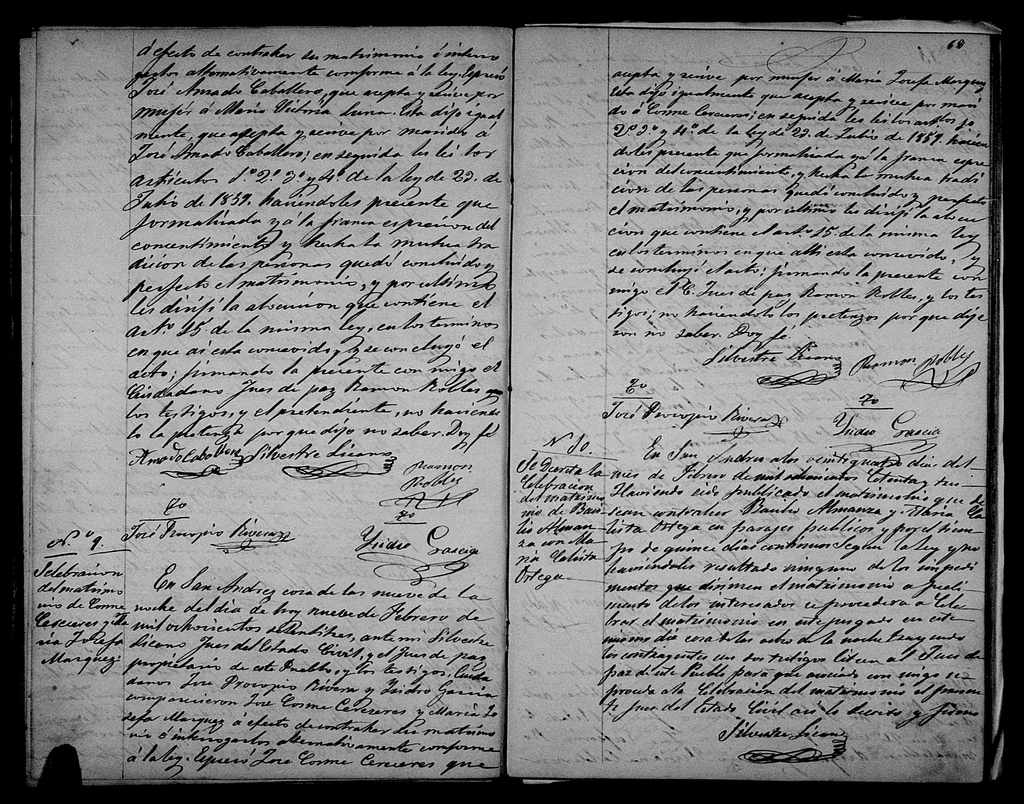 á efecto de contraher su matrimonio é interro
garlos alternativamente comforme á la ley. Espresó
José Amado Caballero, que acepta y recive por
muger á María Victoria Luna. Esta dijo igual
mente, que acepta y recive por marido á
José Amado Caballero; en seguida les leí los
artículos 1.º 2.º 3.º y 4.º de la ley de 23. de
Julio de 1859. haciendoles presente que
formalizada yá la franca espresion del
concentimiento y hecha la mutua tra
dicion de las personas quedó concluido y
perfecto el matrimonio, y por ultimo
les dirijí la alocucion que contiene el
art.º 15 de la misma ley, en los terminos
en que ai esta concevida, y se concluyó el
acto; firmando la presente con migo el
Ciudadano Jues de paz Ramon Robles,
los testigos, y el pretendiente, no haciendo
lo la pretensa por que dijo no saber. Doy fé
Amado Caballero Silvestre Licano
Ramon
Robles
Tº
José Procopio Rivera
Tº
Ysidro Gracia
Nº 9.
Celebracion
del matrimo
nio de Cosme
Cerceres y Ma
ria Josefa
Marquez
En San Andres cosa de las nueve de la
noche del dia de hoy nueve de Febrero de
mil ochocientos setenta y tres, ante mi Silvestre
Licano Jues del Estado Civil, y el Jues de paz
propietario de este Pueblo, y los testigos, Ciuda
danos José Procopio Rivera y Ysidro Garcia
comparecieron José Cosme Cerceres y María Jo
sefa Marquez á efecto de contraher su matrimo
nio é interrogarlos alternativamente comforme
á la ley. Espresó José Cosme Cerceres que
acepta y recive por muger á María Josefa Marquez
Esta dijo igualmente que acepta y recive por mari
do á Cosme Cerceres; en seguida les leí los artos 1º
2º 3º y 4º de la ley de 23. de Julio de 1859. hacien
doles presente que formalizada yá la franca espre
cion del concentimiento, y hecha la mutua tradi
cion de las personas quedó concluido, y perfecto
el matrimonio, y por ultimo les dirijí la alocu
cion que contiene el artº 15 de la misma ley
en los terminos en que alli esta concevida, y
se concluyó el acto; firmando la presente con
migo el C. Jues de paz Ramon Robles, y los tes
tigos; no haciendolo los pretenzos por que dije
ron no saber. Doy fé
Silvestre Licano Ramon Robles
Tº
José Procopio Rivera
Tº
Ysidro Gracia
Nº 10.
Se Decreta la
Celebracion
del matrimo
nio de Basi
lio Alman
za con Ma
ria Calista
Ortega
En San Andres a los veintiquatro dias del
mes de Febrero de mil ochocientos setenta y tres
Haviendo sido publicado el matrimonio que de
sean contraher Basilio Almanza y Maria Ca
lista Ortega en parajes publicos y por el tiem
po de quince dias continuos segun la ley y no
haviendoles resultado ninguno de los impedi
mentos que dirimen el matrimonio a pedi
mento de los interesados se procedera a Cele
brar el matrimonio en este juzgado en este
mismo dia cosa de las ocho de la noche trayendo
los contrayentes sus dos testigos citesen al Jues de
paz de este Pueblo para que asociado con migo se
proceda a la Celebracion del matrimonio el presen
te Jues del Estado Civil asi lo Decreto y firmo
Silvestre Licano